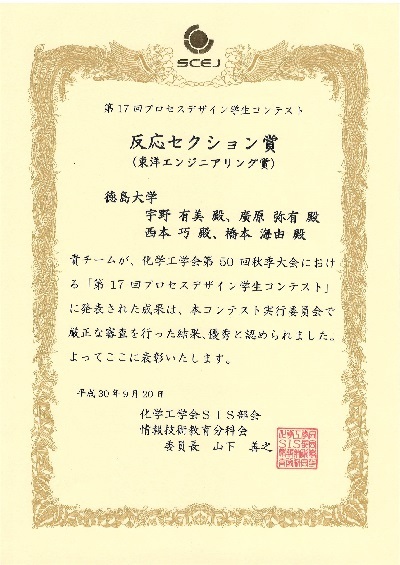 SCEJ
第17回プロセスデザイン学生コンテスト
反応セクション賞
(東洋エンジニアリング賞)
徳島大学
宇野 有美 殿、廣原 弥有 殿
西本 巧 殿、橋本 海由 殿
貴チームが、化学工学会第50回秋季大会におけ
る「第17回プロセスデザイン学生コンテスト」
に発表された成果は、本コンテスト実行委員会で
厳正な審査を行った結果、優秀と認められました。
よってここに表彰いたします。
平成30年9月20日
化学工学会SIS部会
情報技術教育分科会
委員長 山下 善之